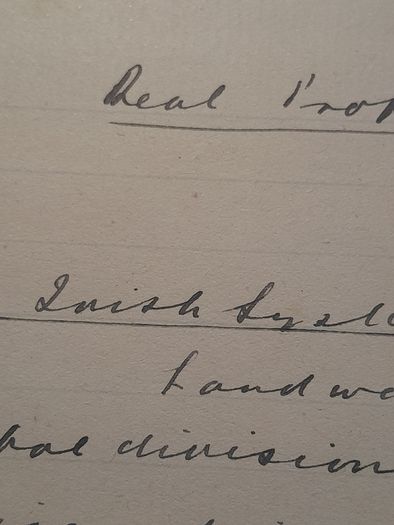 Real Prop
Irish Syste
Land wa
bal division